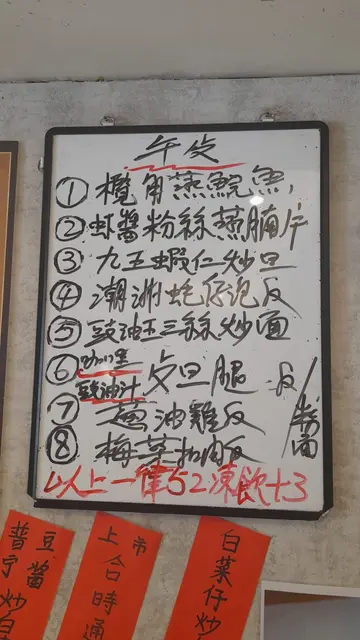 午反
① 欖角蒸鯇魚
② 虾醬粉絲蒸腩片
③ 九王蝦仁炒旦
④ 潮洲蚝仔泡反
⑤ 豉油王三絲炒面
⑥ 咖喱 豉油汁 文旦腿 反/米粉/面
⑦ 蔥油雞反
⑧ 梅菜扣肉反
以上一律52凍飲+3
豆醬
普宁炒
市
上合時通
白菜仔炒